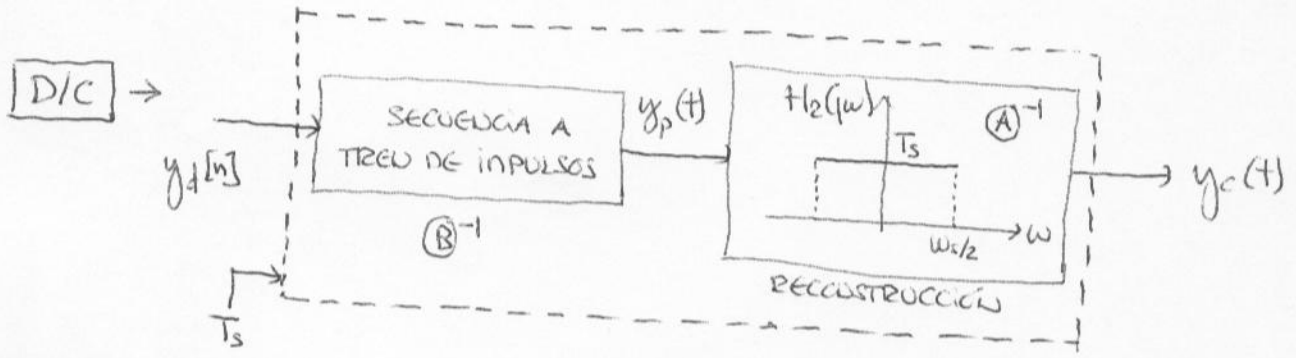 D/C →
y_d[n]
SECUENCIA A
TREN DE IMPULSOS
Ⓑ⁻¹
T_s
y_p(t)
H_2(jω)
Ⓐ⁻¹
T_s
ω_s/2
ω
RECONSTRUCCIÓN
y_c(t)